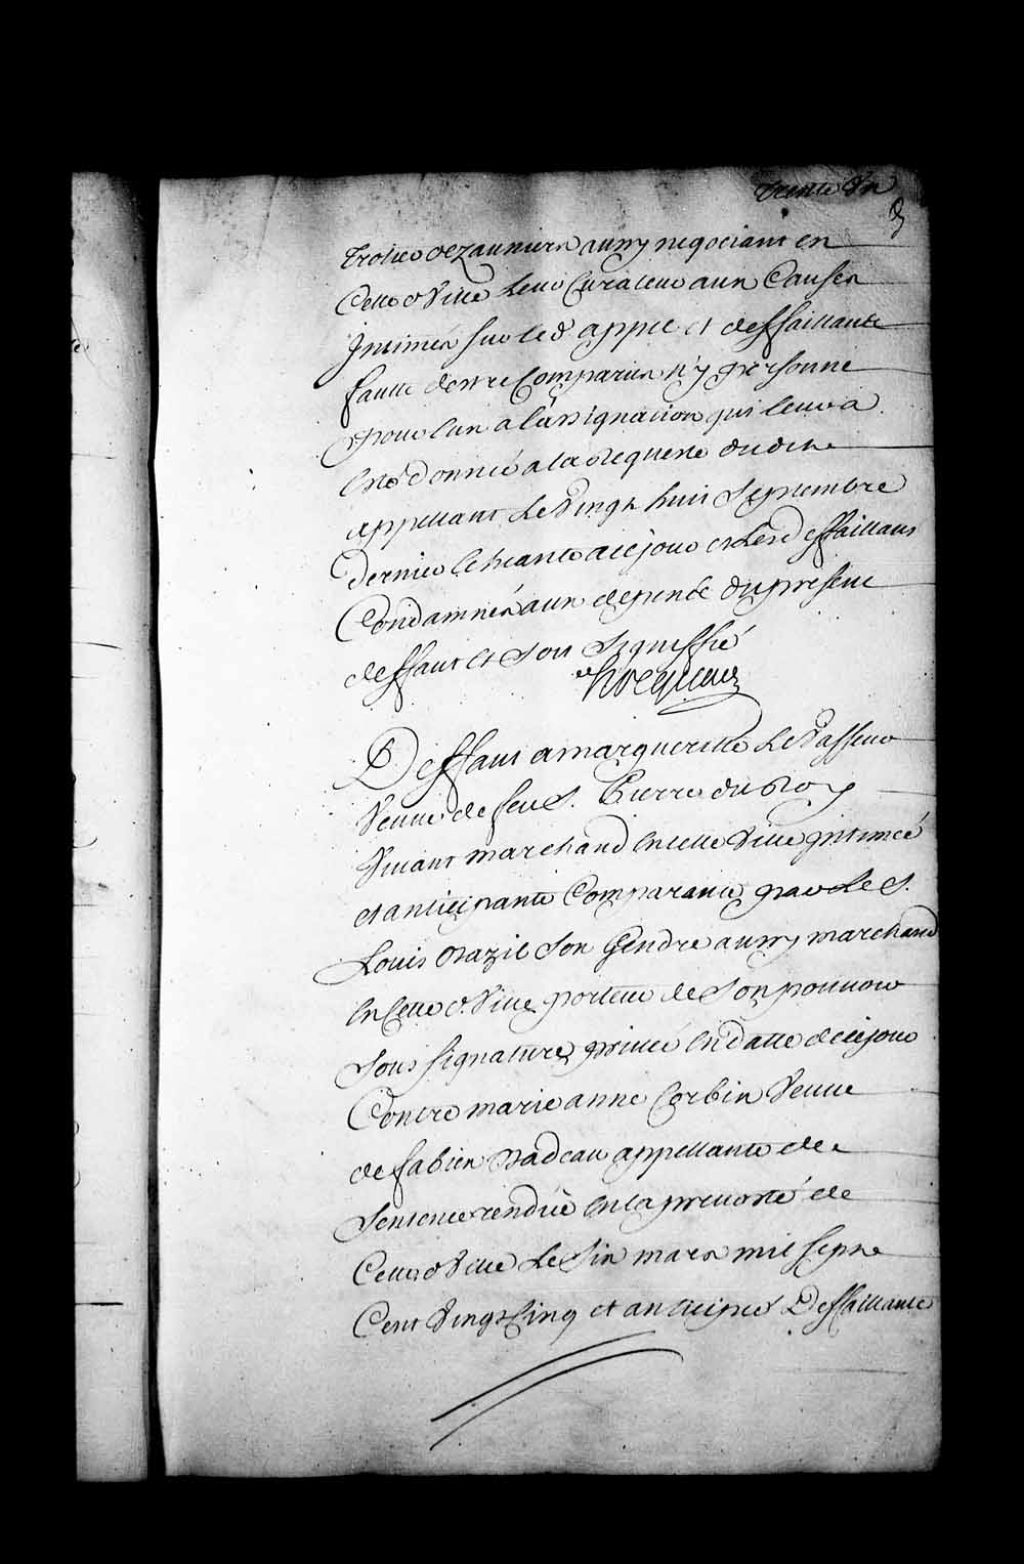 trente Un
trotier dezauniers aussy negociant en
Cette d. Ville leur Curateur aux Causes
Intimés sur led. appel et deffaillants
faute destre Comparus n'y personne
pour Eux a l'assignation qui leur a
Esté donnée a la requeste dudit
appellant le Vingt huit Septembre
dernier Echeante a ce jour et Lesd deffaillans
Condamnés aux depends du present
deffaut et Soit Signiffié
hocquart
Deffaut a margueritte LeVasseur
Veuve de feu S. Pierre du Roy
Vivant marchand En cette Ville intimée
et anticipante Comparante par le S.
Louis Bazil Son Gendre aussy marchand
En Cette d. Ville porteur de Son pouvoir
Sous Signature privée En datte de ce jour
Contre marie anne Corbin Veuve
de fabien Badeau appellante de
Sentence rendüe En la prevosté de
Cette d Ville le Six mars mil sept
Cent Vingt Cinq et anticipée Deffaillante